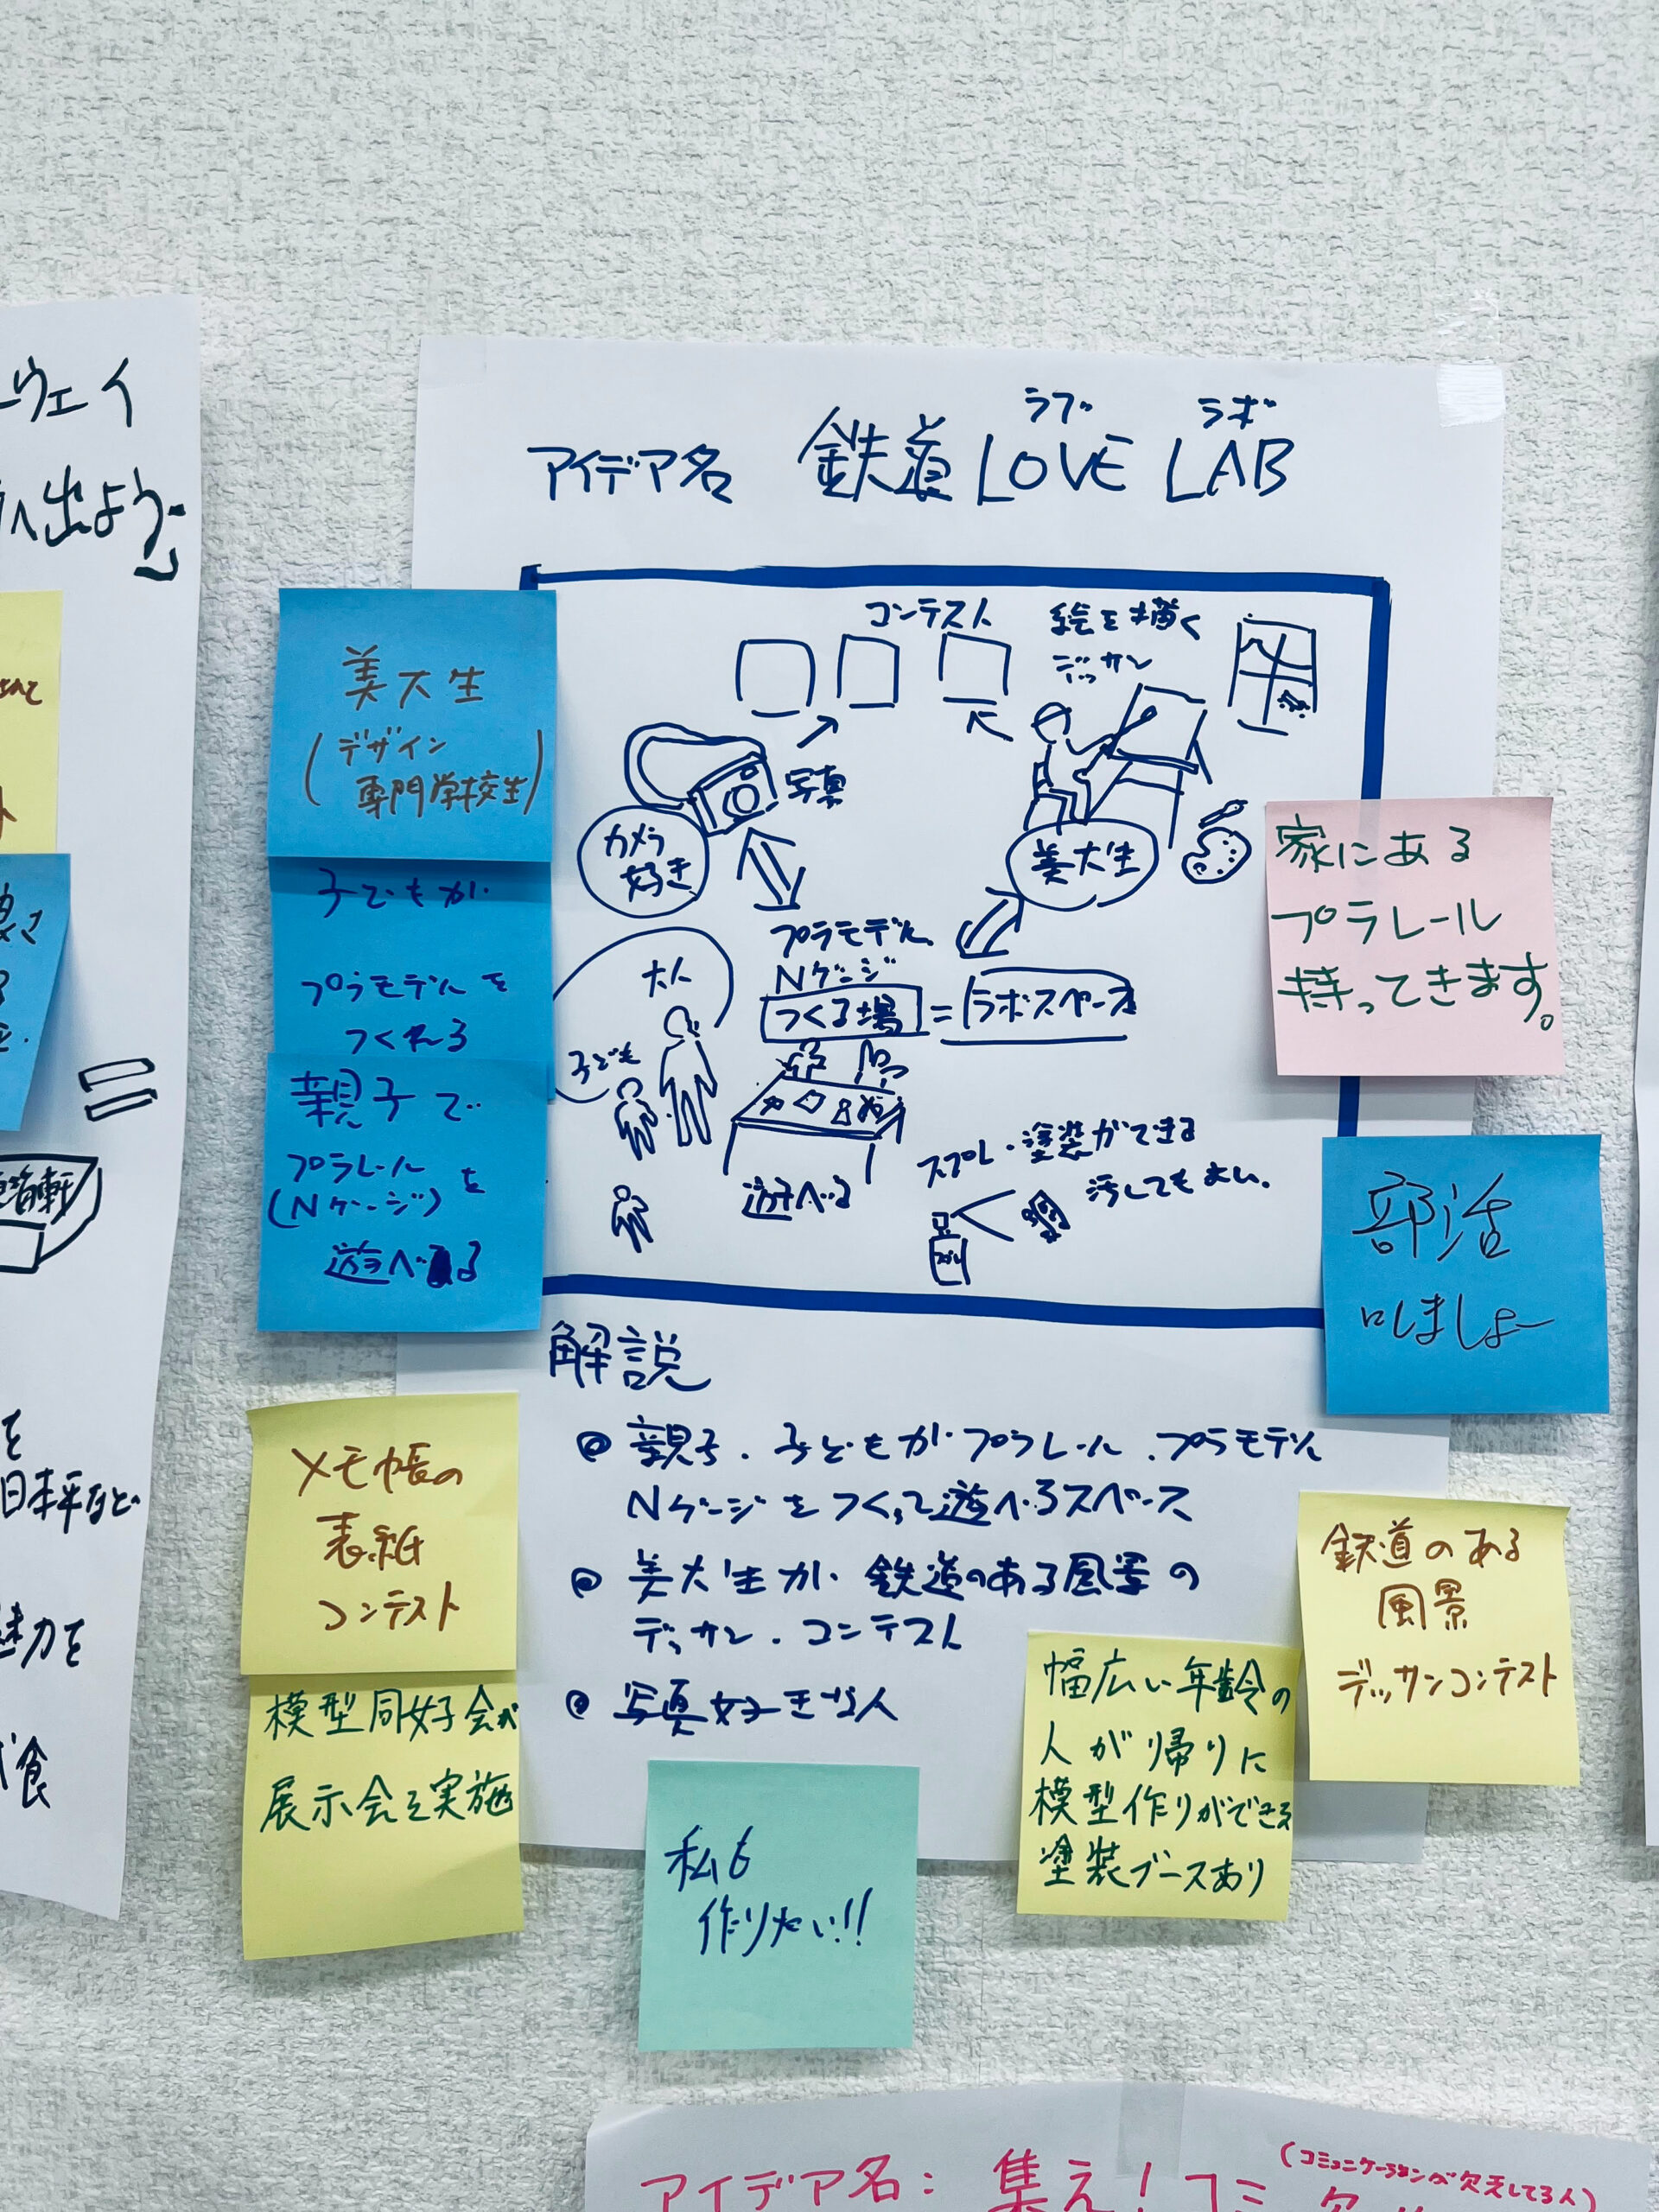 ウェイ
へ出よう
ラブ ラボ
アイデア名 鉄道LOVE LAB
コンテスト
絵を描く
デッサン
写真
カメラ
好き
美大生
プラモデル、
Nゲージ
つくる場 = ラボスペース
大人
子ども
遊べる
スプレー・塗装ができる
汚してもよい。
解説
親子・子どもがプラレール・プラモデル
Nゲージをつくって遊べるスペース
美大生が鉄道のある風景の
デッサン・コンテスト
写真好きな人
美大生
(デザイン
専門学校生)
子どもが
プラモデルを
つくれる
親子で
プラレール
(Nゲージ)を
遊べる
メモ帳の
表紙
コンテスト
模型同好会が
展示会を実施
私も
作りたい!!
幅広い年齢の
人が帰りに
模型作りができる
塗装ブースあり
鉄道のある
風景
デッサンコンテスト
家にある
プラレール
持ってきます。
部活
にしましょー
を
日本平など
魅力を
食
(コミュニケーションが欠乏してる人)
アイデア名: 集え!コミ